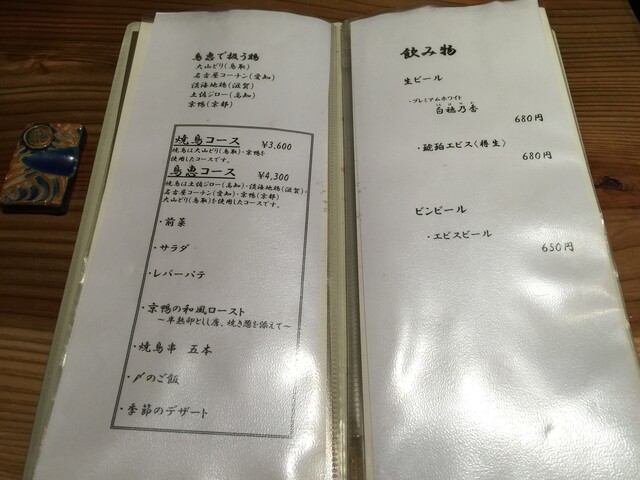 鳥恵で扱う鶏
大山どり(鳥取)
名古屋コーチン(愛知)
淡海地鶏(滋賀)
土佐ジロー(高知)
京鴨(京都)
焼鳥コース ¥3,600
焼鳥は大山どり(鳥取)・京鴨を
使用したコースです。
鳥恵コース ¥4,300
焼鳥は土佐ジロー(高知)・淡海地鶏(滋賀)・
名古屋コーチン(愛知)・京鴨(京都)
大山どり(鳥取)を使用したコースです。
・前菜
・サラダ
・レバーパテ
・京鴨の和風ロースト
～半熟卵とし唐、焼き葱を添えて～
・焼鳥串 五本
・〆のご飯
・季節のデザート
飲み物
生ビール
・プレミアムホワイト
白穂乃香
680円
・琥珀エビス〈樽生〉
680円
ビンビール
・エビスビール
650円